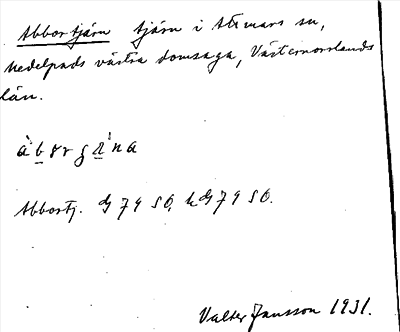 Abbortjärn tjärn i Attmars sn,
Medelpads västra domsaga, Västernorrlands
län.
Abbortj. G 79 SO, kG 79 SO.
Valter Jansson 1931.